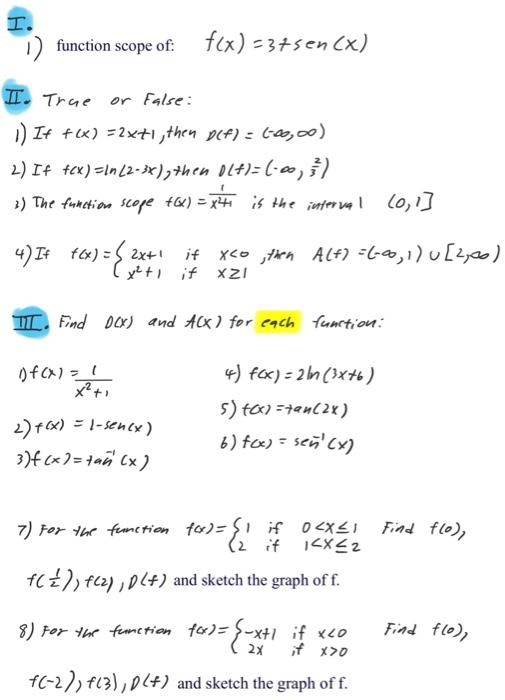 I.
1) function scope of: f(x) = 3+sen(x)
II. True or False:
1) If f(x) = 2x+1, then D(f) = (-∞,∞)
2) If f(x) = ln(2-3x), then D(f) = (-∞, 2/3)
3) The function scope f(x) = 1/(x²+1) is the interval (0,1]
4) If f(x) = { 2x+1 if x<0, then A(f) = (-∞,1) ∪ [2,∞)
{ x²+1 if x≥1
III. Find D(x) and A(x) for each function:
1) f(x) = 1/(x²+1)
2) f(x) = 1-sen(x)
3) f(x) = tan⁻¹(x)
4) f(x) = 2ln(3x+6)
5) f(x) = tan(2x)
6) f(x) = sen⁻¹(x)
7) For the function f(x) = { 1 if 0<x≤1 Find f(0),
{ 2 if 1<x≤2
f(1/2), f(2), D(f) and sketch the graph of f.
8) For the function f(x) = { -x+1 if x<0 Find f(0),
{ 2x if x>0
f(-2), f(3), D(f) and sketch the graph of f.